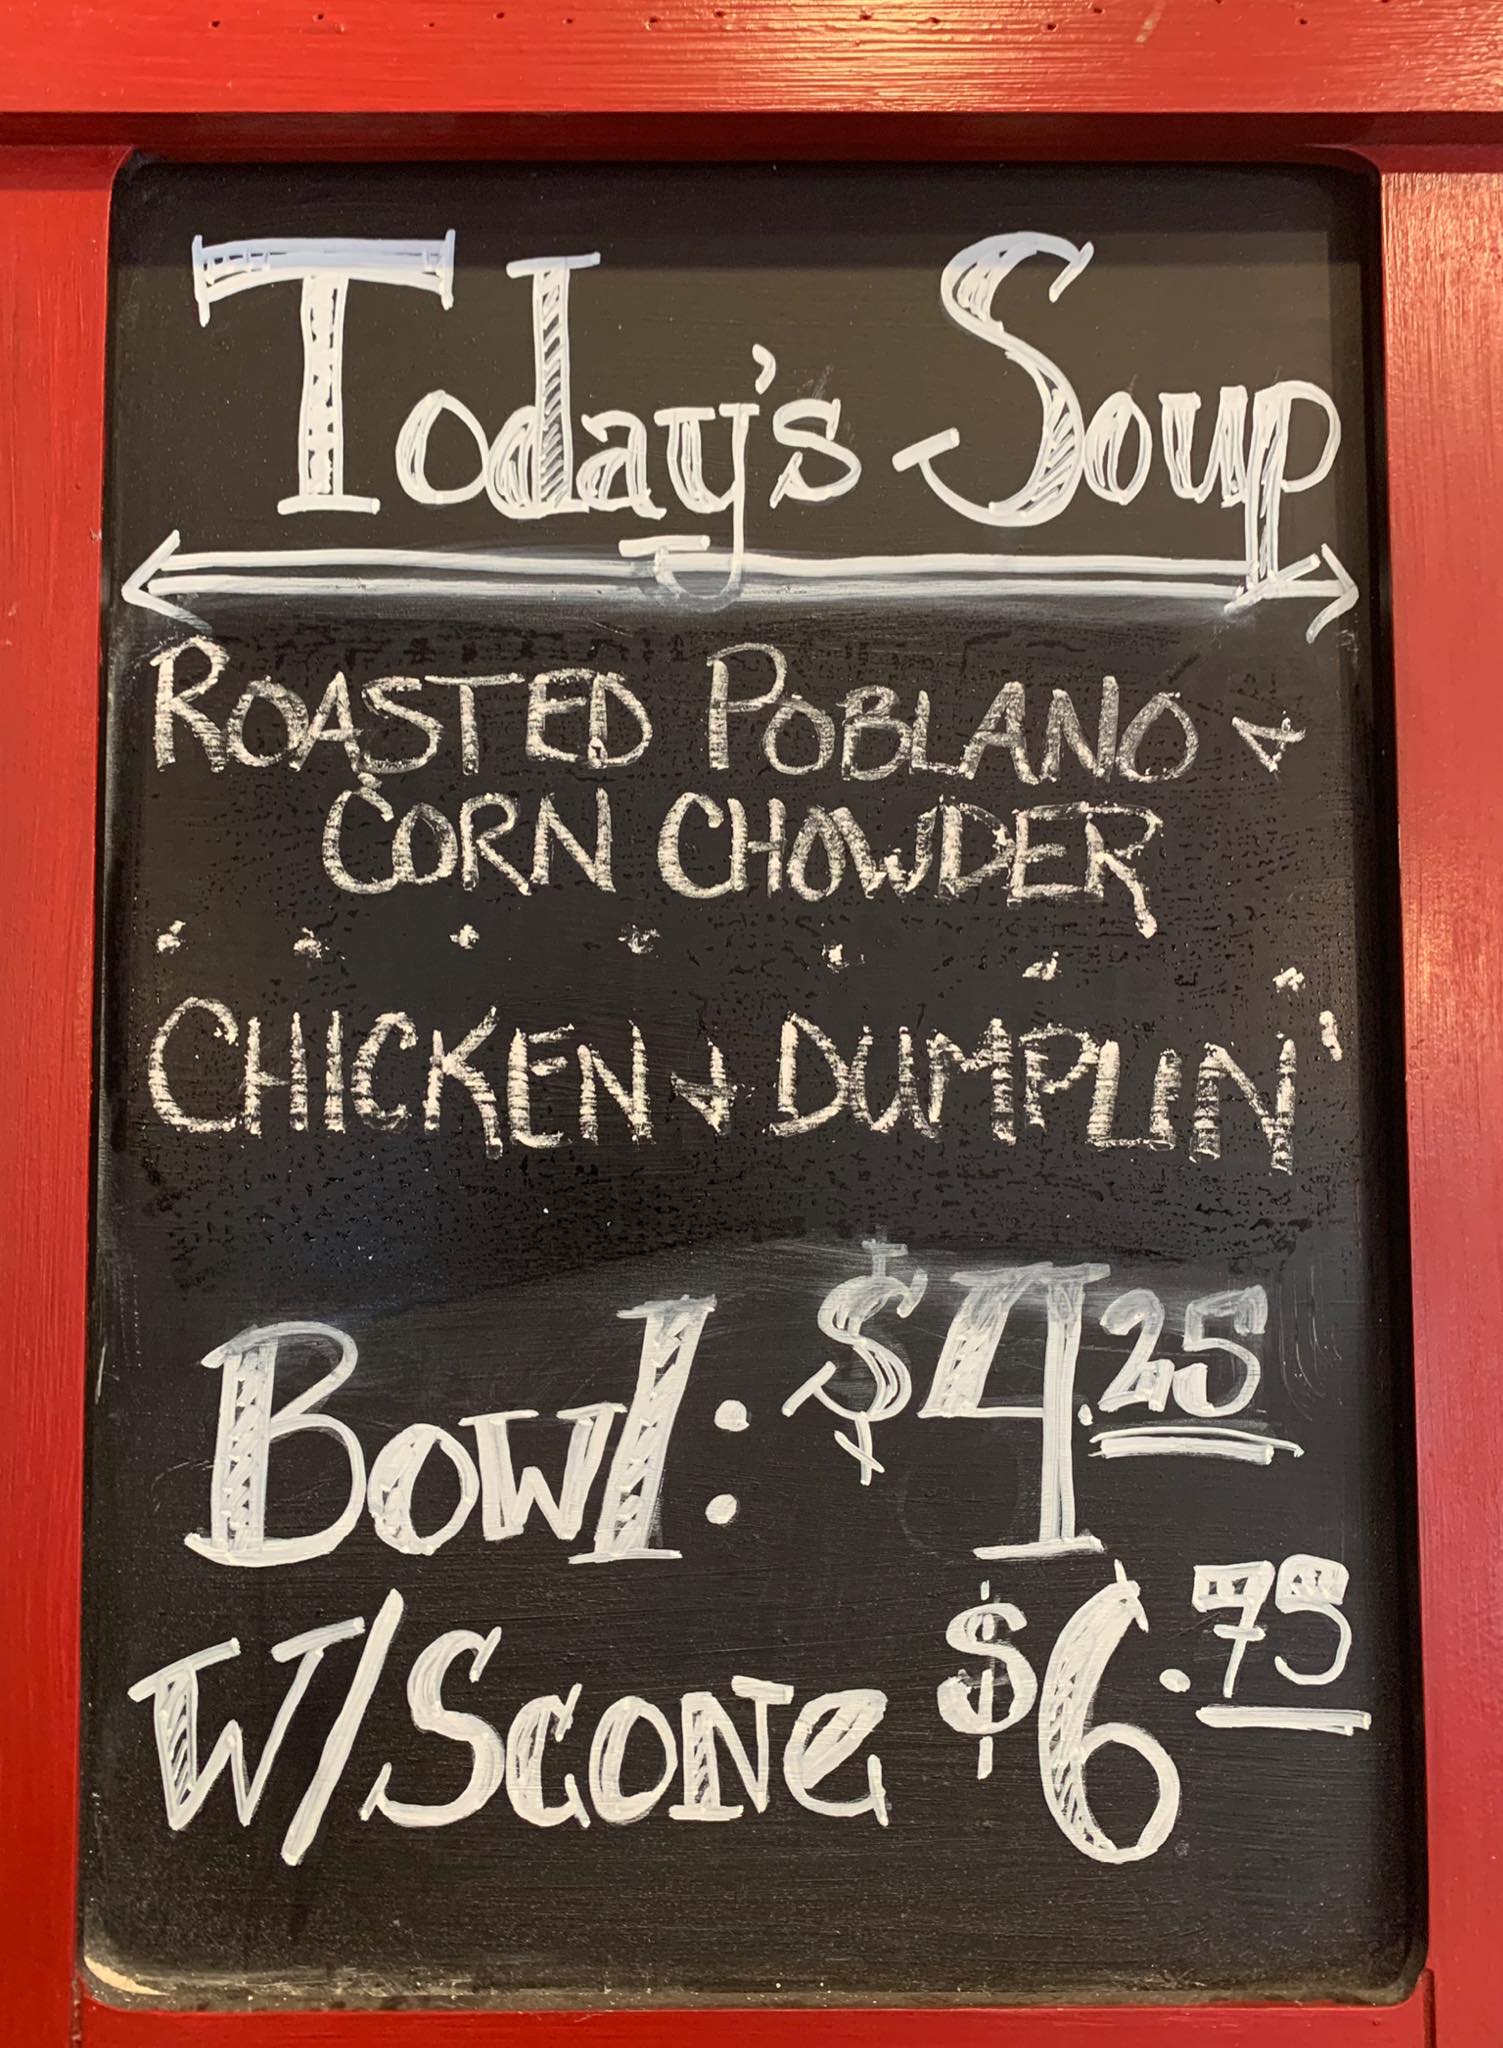 Today's Soup
ROASTED POBLANO &
CORN CHOWDER
CHICKEN & DUMPLIN'
Bowl: $4.25
W/Scone $6.75